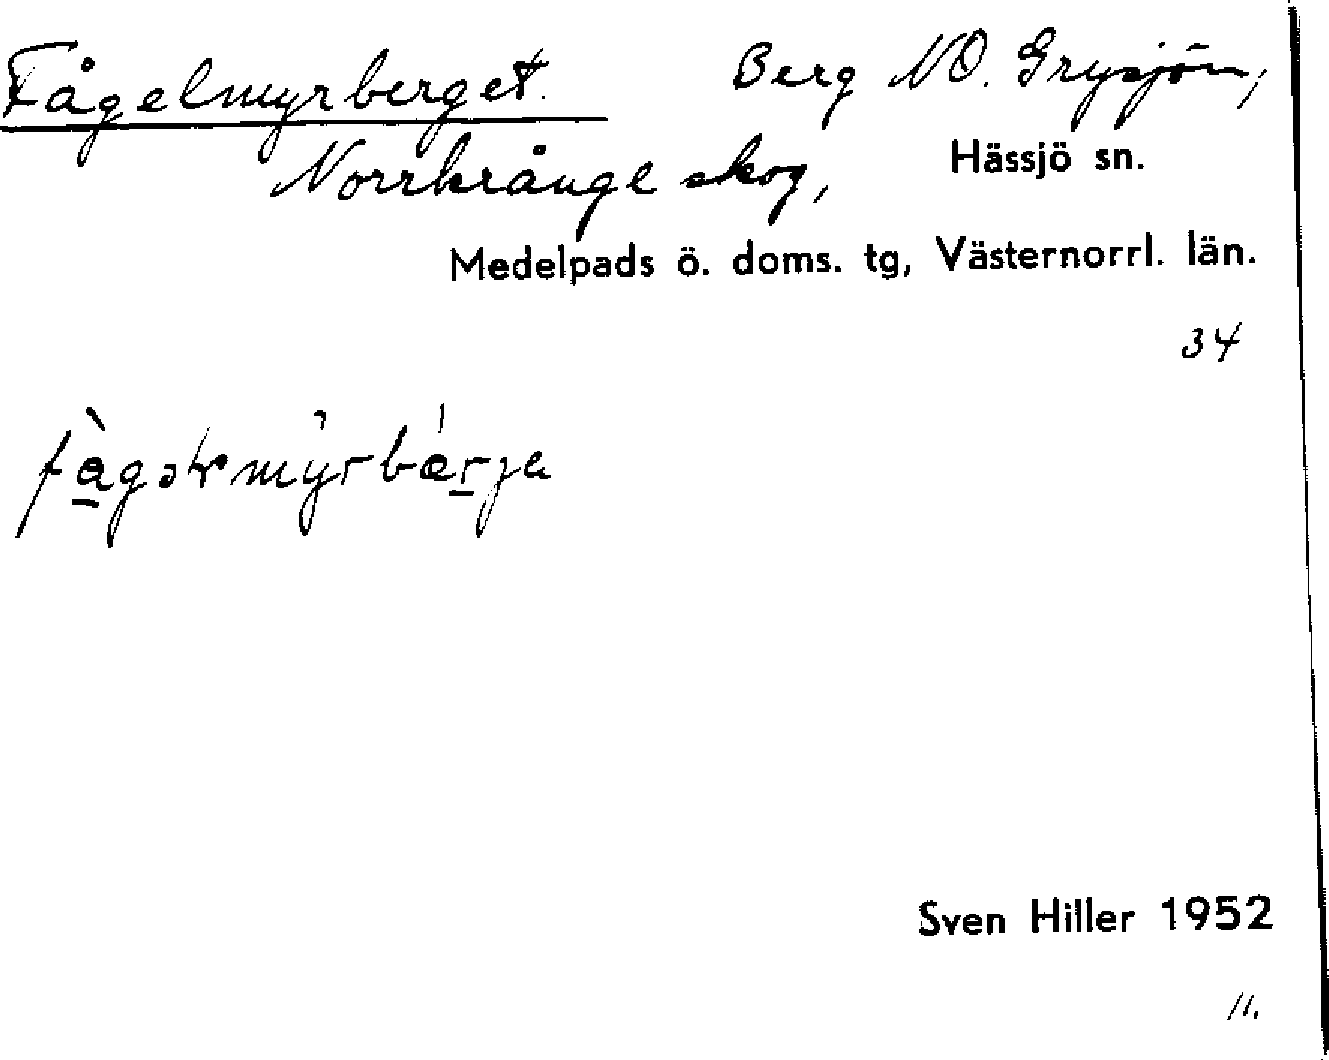 Fågelmyrberget. Berg NO. Grysjön,
Norrkrånge skog, Hässjö sn.
Medelpads ö. doms. tg, Västernorrl. län.
34
Sven Hiller 1952